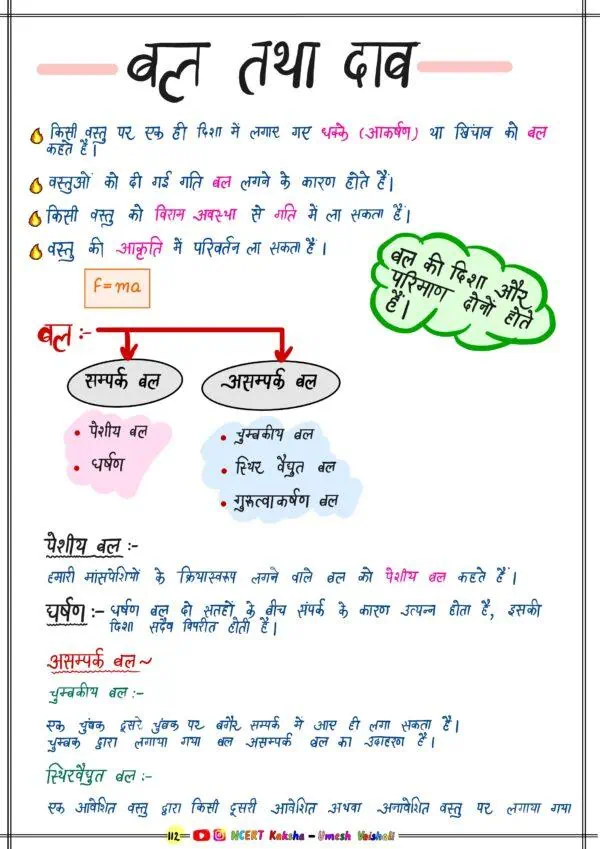 बल तथा दाब
किसी वस्तु पर एक ही दिशा में लगाए गए धक्के (आकर्षण) था खिंचाव को बल
कहते हैं।
वस्तुओं को दी गई गति बल लगने के कारण होते हैं।
किसी वस्तु को विराम अवस्था से गति में ला सकता है।
वस्तु की आकृति में परिवर्तन ला सकता है।
बल की दिशा और
परिमाण दोनों होते
हैं।
F=ma
बल :-
सम्पर्क बल
असम्पर्क बल
• पेशीय बल
• घर्षण
• चुम्बकीय बल
• स्थिर वैद्युत बल
• गुरुत्वाकर्षण बल
पेशीय बल :-
हमारी मांसपेशियों के क्रियास्वरूप लगने वाले बल को पेशीय बल कहते हैं।
घर्षण :- घर्षण बल दो सतहों के बीच संपर्क के कारण उत्पन्न होता है, इसकी
दिशा सदैव विपरीत होती है।
असम्पर्क बल ~
चुम्बकीय बल :-
एक चुंबक दूसरे चुंबक पर बगैर सम्पर्क में आए ही लगा सकता है।
चुम्बक द्वारा लगाया गया बल असम्पर्क बल का उदाहरण है।
स्थिरवैद्युत बल :-
एक आवेशित वस्तु द्वारा किसी दूसरी आवेशित अथवा अनावेशित वस्तु पर लगाया गया
112 NCERT Kaksha - Umesh Vaishali